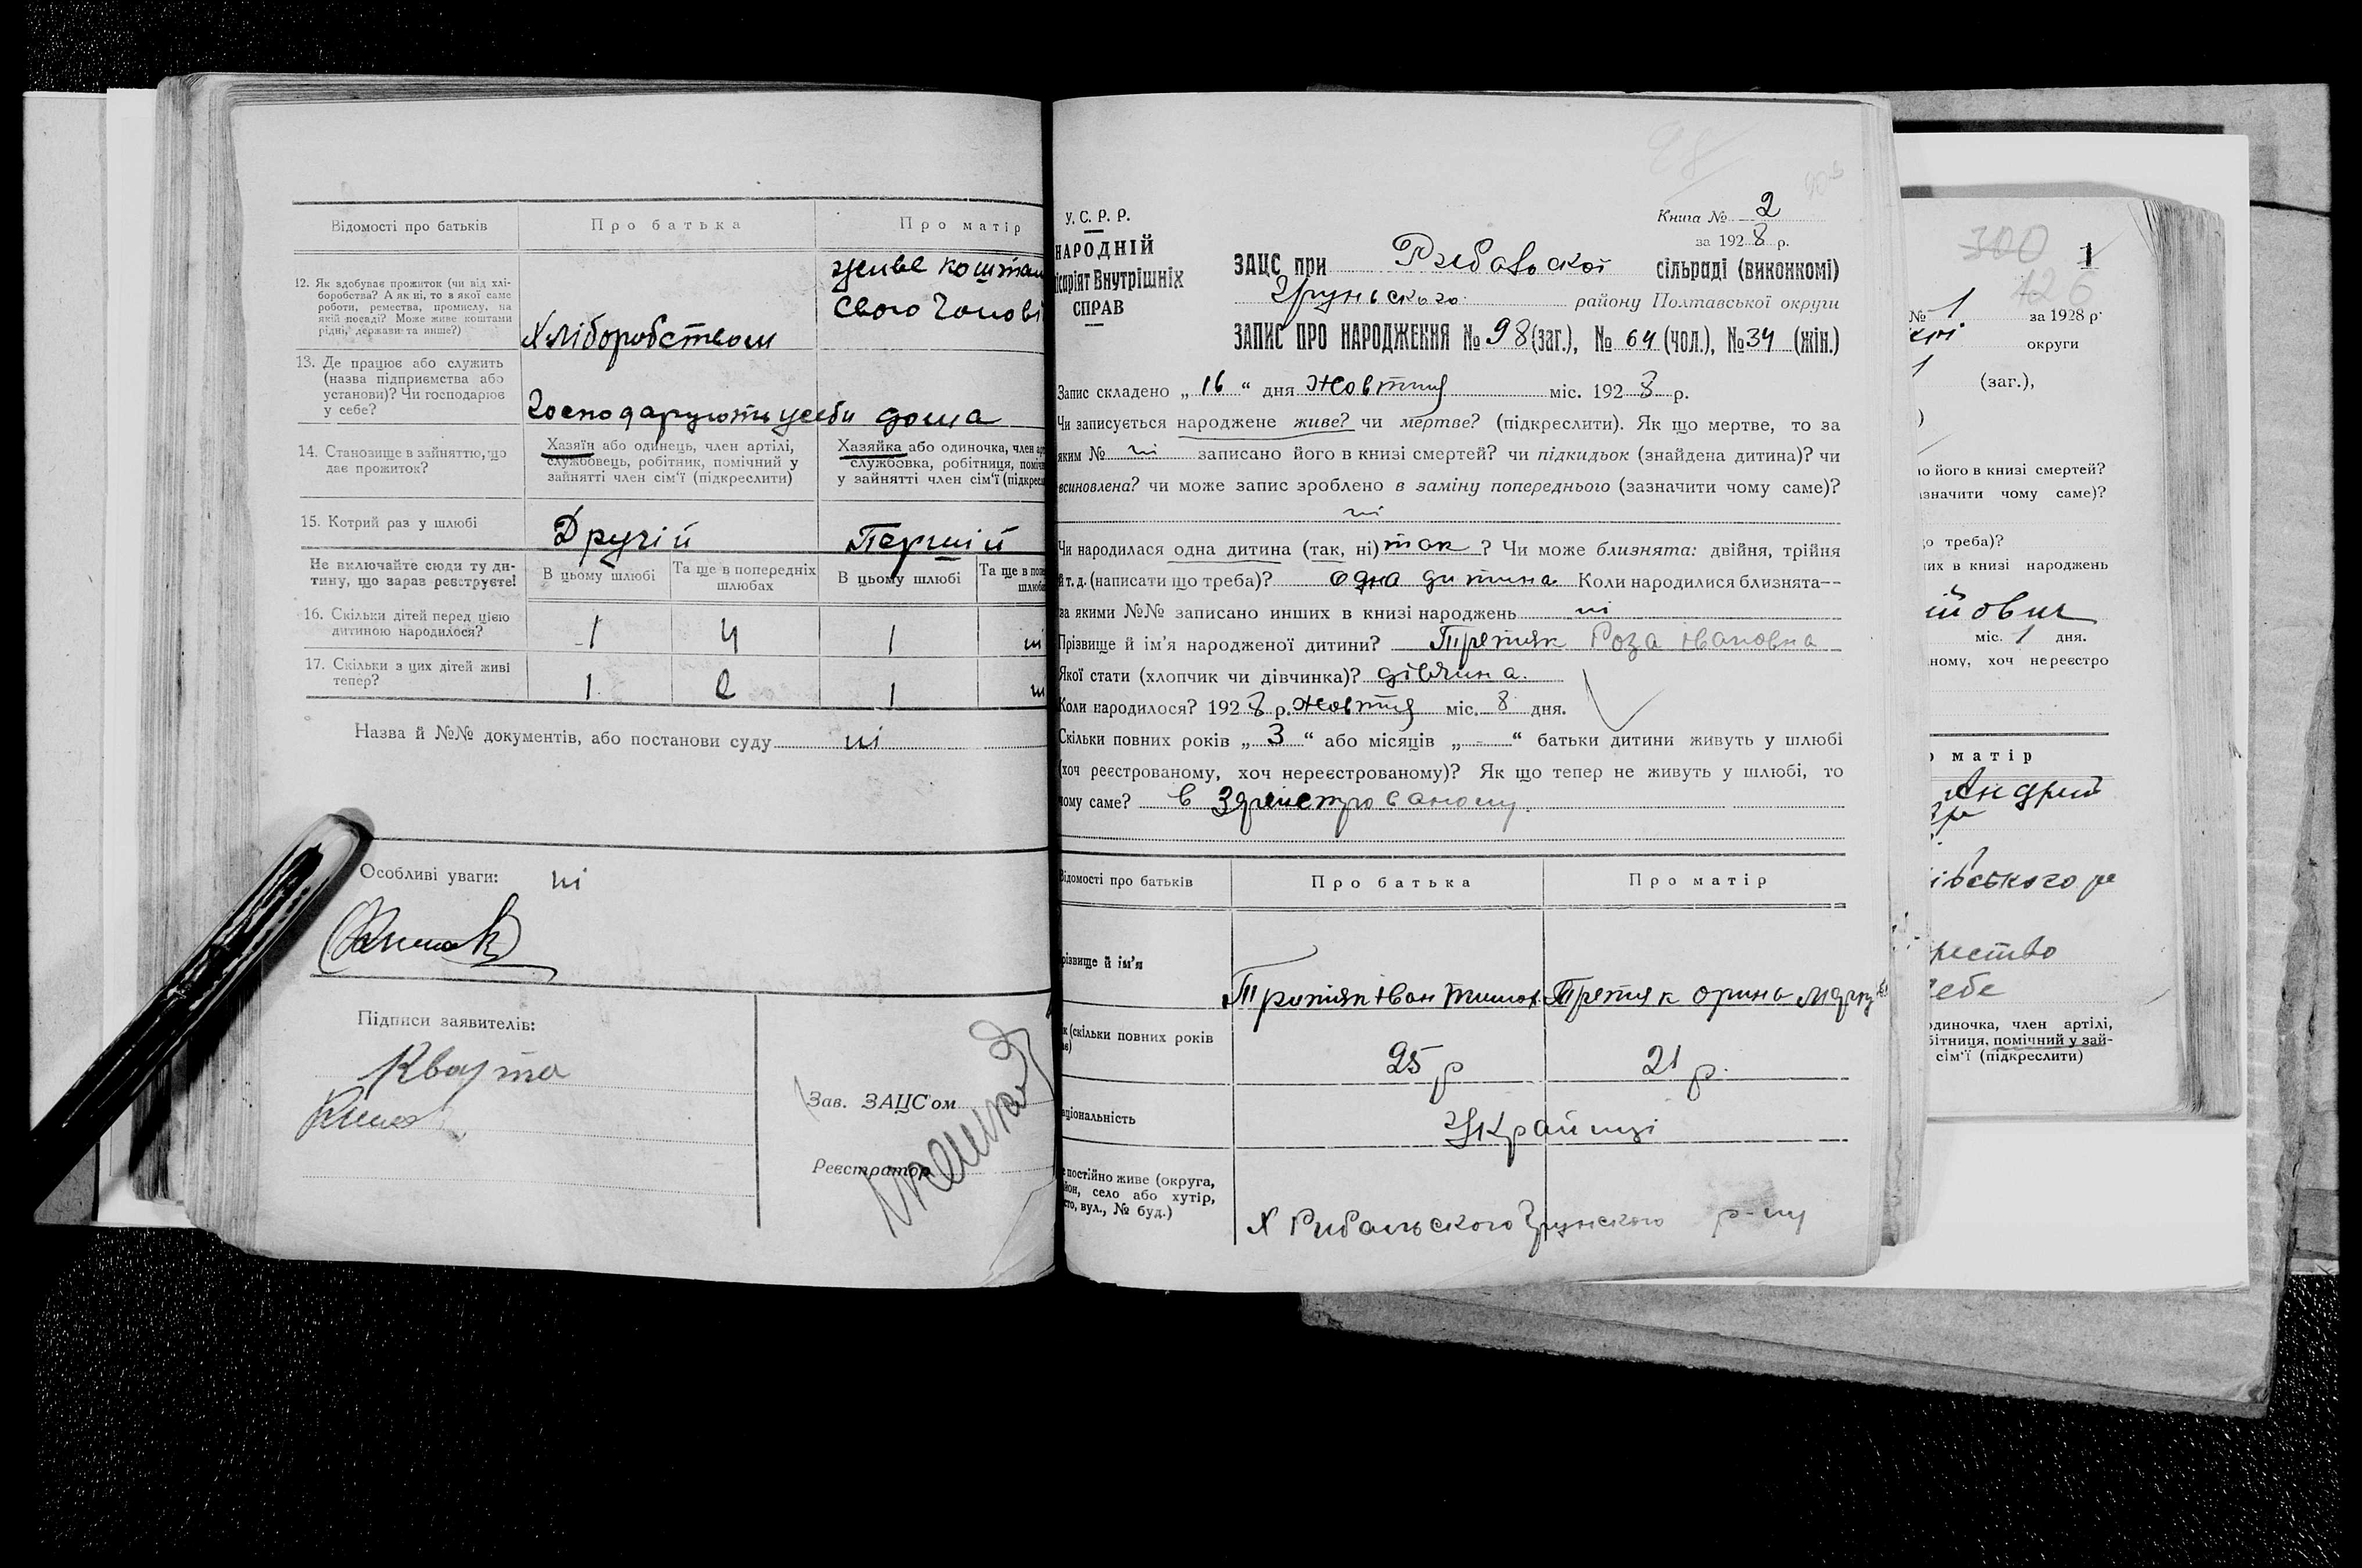 Відомості про батьків
Про батька
Про матір
12. Як здобуває прожиток (чи від хлі-
боробства? А як ні, то з якої саме
роботи, ремества, промислу, на
якій посаді? Може живе коштами
рідні, держави та инше?)
Хліборобством
живе коштам
свого чолові
13. Де працює або служить
(назва підприємства або
установи)? Чи господарює
у себе?
Господарують усеби дома
14. Становище в зайняттю, що
дає прожиток?
Хазяїн або одинець, член артілі,
службовець, робітник, помічний у
зайнятті член сім'ї (підкреслити)
Хазяйка або одиночка, член арт
службовка, робітниця, поміч
у зайнятті член сім'ї (підкресл
15. Котрий раз у шлюбі
Другій
Першій
Не включайте сюди ту ди-
тину, що зараз реєструєте!
В цьому шлюбі
Та ще в попередніх
шлюбах
В цьому шлюбі
Та ще в попе
шлюба
16. Скільки дітей перед цією
дитиною народилося?
1 4 1 ні
17. Скільки з цих дітей живі
тепер?
1 2 1 ні
Назва й №№ документів, або постанови суду ні
Особливі уваги: ні
Підписи заявителів:
Кварта
Зав. ЗАЦС'ом
Реєстратор
У. С. Р. Р.
НАРОДНІЙ
місаріят Внутрішніх
СПРАВ
Книга № 2
за 1928 р.
ЗАЦС при Рибальської сільраді (виконкомі)
Груньского району Полтавської округи
ЗАПИС ПРО НАРОДЖЕННЯ № 98 (заг.), № 64 (чол.), № 34 (жін.)
Запис складено „16“ дня Жовтня міс. 1928 р.
Чи записується народжене живе? чи мертве? (підкреслити). Як що мертве, то за
яким № ні записано його в книзі смертей? чи підкидьок (знайдена дитина)? чи
всиновлена? чи може запис зроблено в заміну попереднього (зазначити чому саме)?
ні
Чи народилася одна дитина (так, ні) так ? Чи може близнята: двійня, трійня
й т. д. (написати що треба)? одна дитина Коли народилися близнята—
за якими №№ записано инших в книзі народжень ні
Прізвище й ім'я народженої дитини? Третяк Роза Івановна
Якої стати (хлопчик чи дівчинка)? дівчина.
Коли народилося? 1928 р. Жовтня міс. 8 дня.
Скільки повних років „3“ або місяців „-“ батьки дитини живуть у шлюбі
(хоч реєстрованому, хоч нереєстрованому)? Як що тепер не живуть у шлюбі, то
чому саме? в Зареїстрованому.
Відомості про батьків
Про батька
Про матір
різвище й ім'я
Третяк Іван Тимов
Третяк Орина Марку
к (скільки повних років
25 р
21 р.
аціональність
Українці
е постійно живе (округа,
йон, село або хутір,
сто, вул., № буд.)
Х Рибальского Грунского р-ну
300
1
126
№ 1 за 1928 р.
округи
1 (заг.),
)
ло його в книзі смертей?
азначити чому саме)?
о треба)?
их в книзі народжень
йович
міс. 1 дня.
ному, хоч нереєстро
о матір
Андрій
івського р
чество
себе
одиночка, член артілі,
бітниця, помічний у зай-
сім'ї (підкреслити)